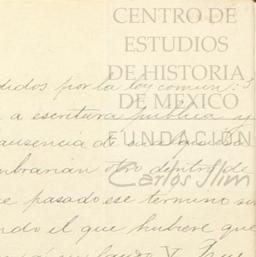 CENTRO DE
ESTUDIOS
DE HISTORIA
DE MÉXICO
FUNDACIÓN
Carlos Slim
didos por la ley comun: 3
a escritura publica y
ausencia de
mbrarán otro dentro de
e pasado ese termino
ndo el que hubiere que